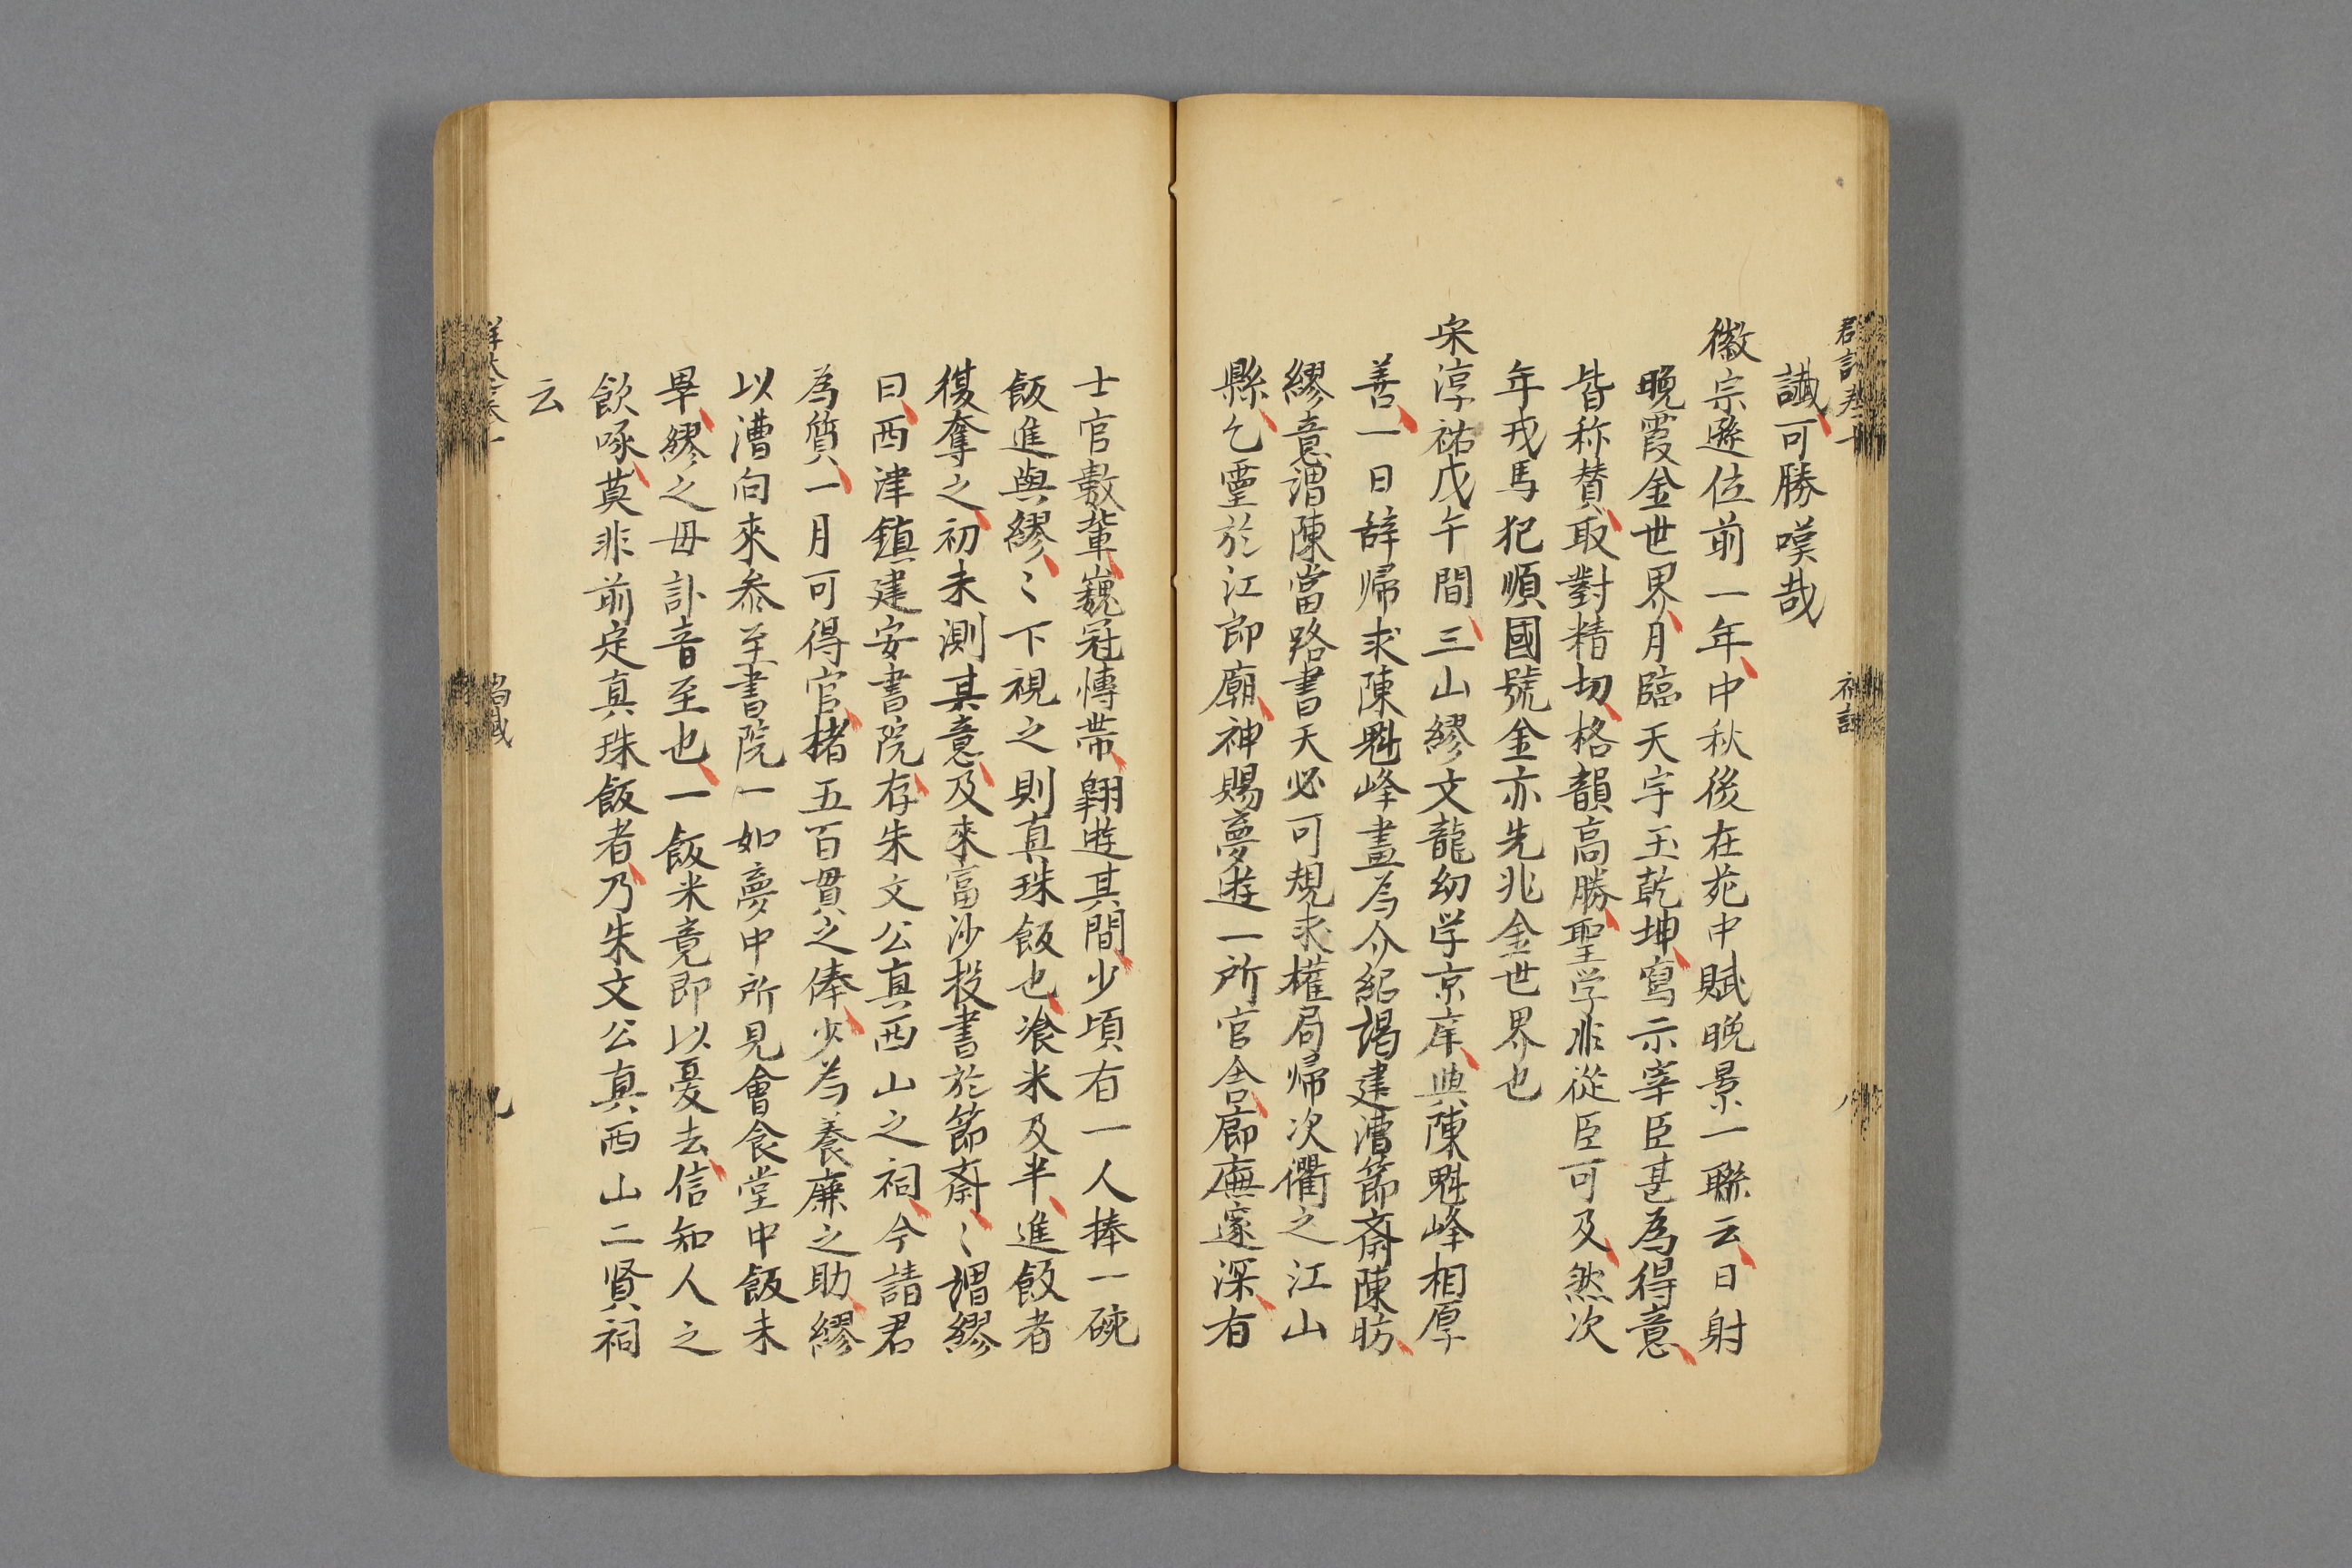 讖可勝嘆哉
徽宗遜位前一年中秋後在苑中賦晚景一聯云日射
晚霞金世界月臨天宇玉乾坤寫示宰臣甚為得意
皆称賛取對精切格韻高勝聖学非從臣可及然次
年戎馬犯順國號金亦先兆金世界也
宋淳祐戊午間三山繆文龍幼学京庠與陳魁峰相厚
善一日辞帰求陳魁峰書為介紹謁建漕節斎陳昉
繆意謂陳當路書天必可規求權局帰次衢之江山
縣乞霊於江郎廟神賜夢遊一所官舎廊廡邃深有
士官數輩巍冠愽帶翺遊其間少頃有一人捧一碗
飯進與繆〻下視之則真珠飯也飡米及半進飯者
復奪之初未測其意及來富沙投書於節斎〻謂繆
曰西津鎮建安書院存朱文公真西山之祠今請君
為質一月可得官楮五百貫之俸少為養廉之助繆
以漕向來参至書院一如夢中所見會食堂中飯未
畢繆之毋訃音至也一飯米竟即以憂去信知人之
飲啄莫非前定真珠飯者乃朱文公真西山二賢祠
云